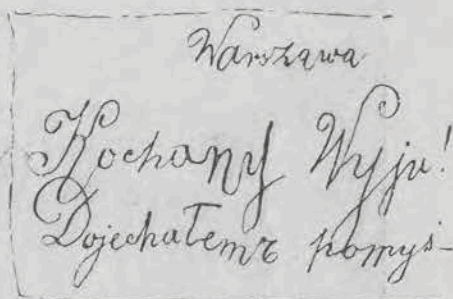 Warszawa
Kochany Wyju!
Dojechałemz pomyś-